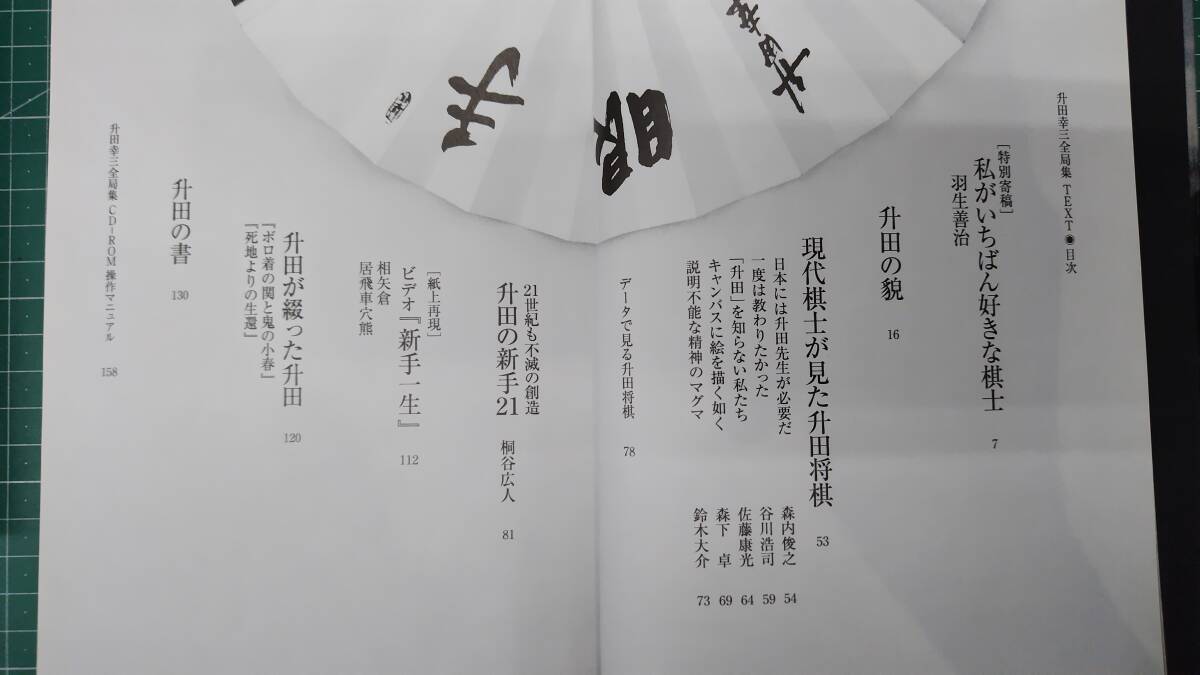 升田幸三全局集 TEXT◉目次
[特別寄稿]
私がいちばん好きな棋士 7
羽生善治
升田の貌 16
現代棋士が見た升田将棋 53
日本には升田先生が必要だ 森内俊之 54
一度は教わりたかった 谷川浩司 59
「升田」を知らない私たち 佐藤康光 64
キャンバスに絵を描く如く 森下 卓 69
説明不能な精神のマグマ 鈴木大介 73
データで見る升田将棋 78
21世紀も不滅の創造
升田の新手21 桐谷広人 81
[紙上再現]
ビデオ『新手一生』 112
相矢倉
居飛車穴熊
升田が綴った升田 120
『ボロ着の関と鬼の小春』
『死地よりの生還』
升田の書 130
升田幸三全局集 CD-ROM 操作マニュアル 158
升田幸
眼